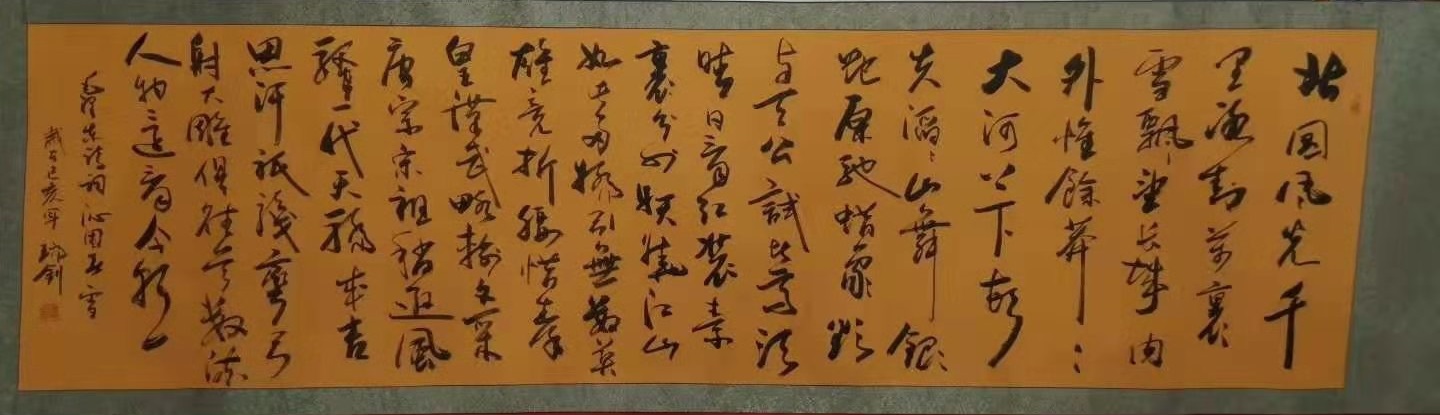 北国风光千
里冰封万裏
雪飄望长城内
外惟餘莽々
大河上下顿
失滔々山舞銀
蛇原驰蜡象欲
与天公試比高须
晴日看红裝素
裹分外妖娆江山
如此多娇引無数英
雄竞折腰惜秦
皇漢武略输文采
唐宗宋祖稍逊風
骚一代天骄成吉
思汗祗識彎弓
射大雕俱往矣数流
人物還看今朝
毛泽东诗词沁园春雪
歲在己亥年